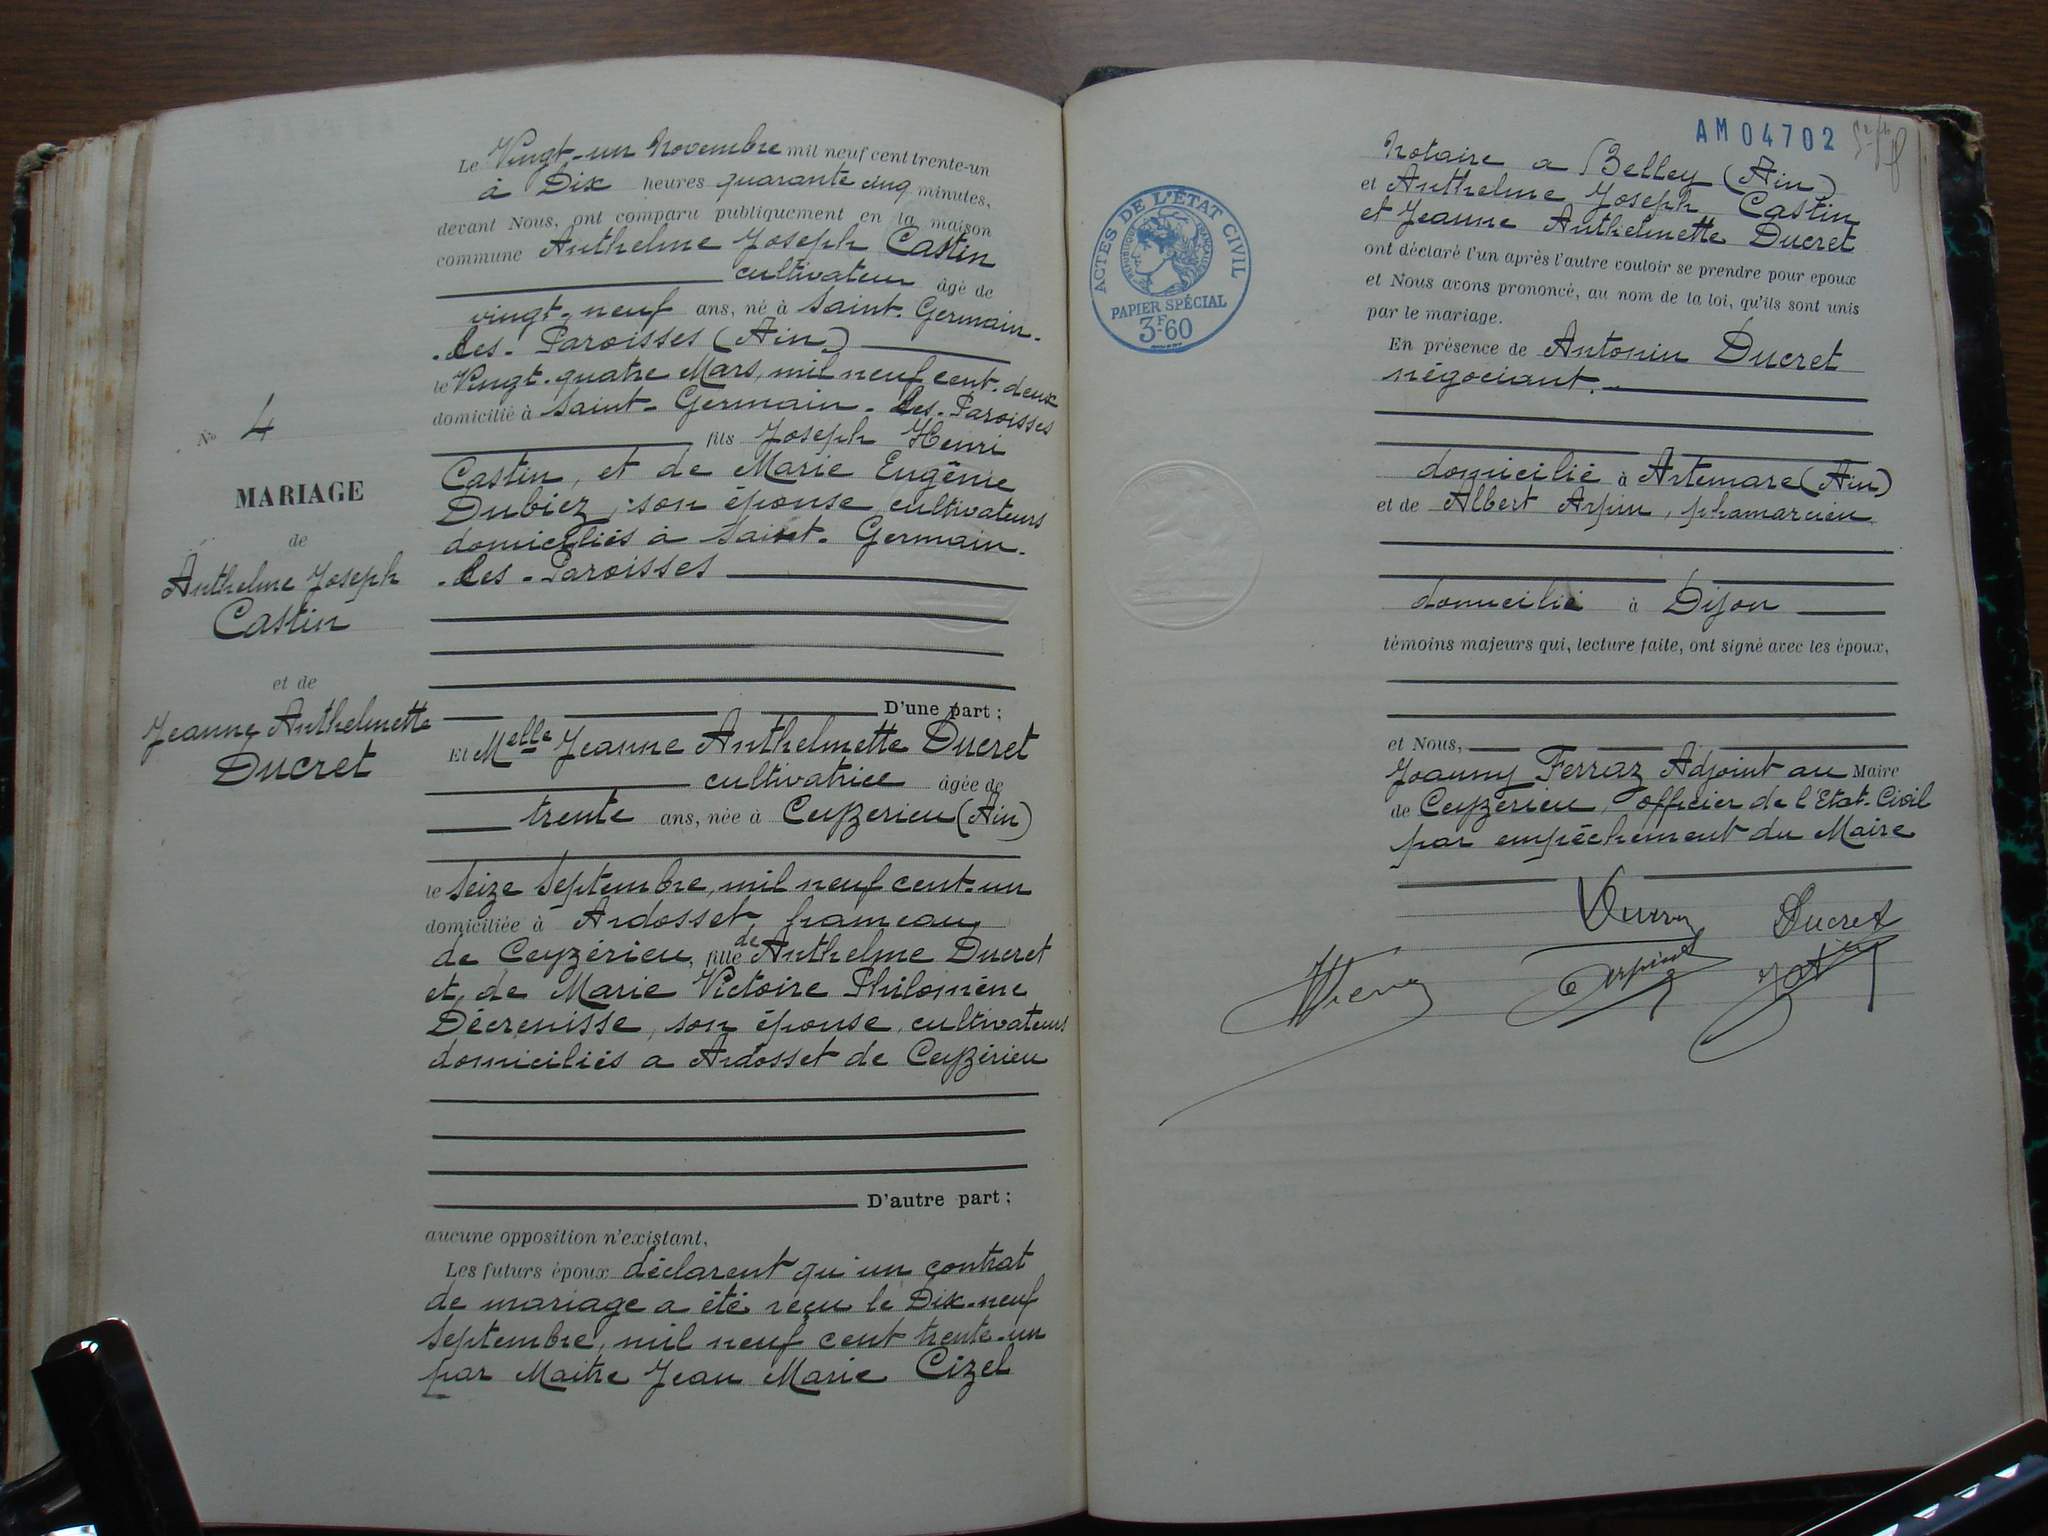 Le Vingt-un Novembre mil neuf cent trente-un
à Dix heures quarante cinq minutes,
devant Nous, ont comparu publiquement en la maison
commune Anthelme Joseph Castin
cultivateur âgé de
vingt-neuf ans, né à Saint-Germain-
-les-Paroisses (Ain)
le Vingt-quatre Mars, mil neuf cent-deux
domicilié à Saint-Germain-les-Paroisses
fils Joseph Henri
Castin, et de Marie Eugénie
Dubiez, son épouse cultivateurs
domiciliés à Saint-Germain-
-les-Paroisses
D'une part ;
Et Melle Jeanne Anthelmette Ducret
cultivatrice âgée de
trente ans, née à Ceyzerieu (Ain)
le Seize Septembre, mil neuf cent-un
domiciliée à Ardosset hameau
de Ceyzérieu, fille de Anthelme Ducret
et de Marie Victoire Philomène
Décrenisse, son épouse, cultivateurs
domiciliés a Ardosset de Ceyzérieu
D'autre part ;
aucune opposition n'existant,
Les futurs époux déclarent qu'un contrat
de mariage a été reçu le Dix-neuf
Septembre, mil neuf cent trente-un
par Maitre Jean Marie Cizel
No 4
MARIAGE
de
Anthelme Joseph
Castin
et de
Jeanne Anthelmette
Ducret
AM04702
ACTES DE L'ÉTAT CIVIL
RÉPUBLIQUE FRANÇAISE
PAPIER SPÉCIAL
3F60
Notaire a Belley (Ain)
et Anthelme Joseph Castin
et Jeanne Anthelmette Ducret
ont déclaré l'un après l'autre vouloir se prendre pour epoux
et Nous avons prononcé, au nom de la loi, qu'ils sont unis
par le mariage.
En présence de Antonin Ducret
négociant.
domicilié à Artemare (Ain)
et de Albert Arpin, phamarcien
domicilié à Dijon
témoins majeurs qui, lecture faite, ont signé avec les époux,
et Nous,
Joanny Ferraz Adjoint au Maire
de Ceyzérieu, officier de l'Etat-Civil
par empêchement du Maire
Ducret